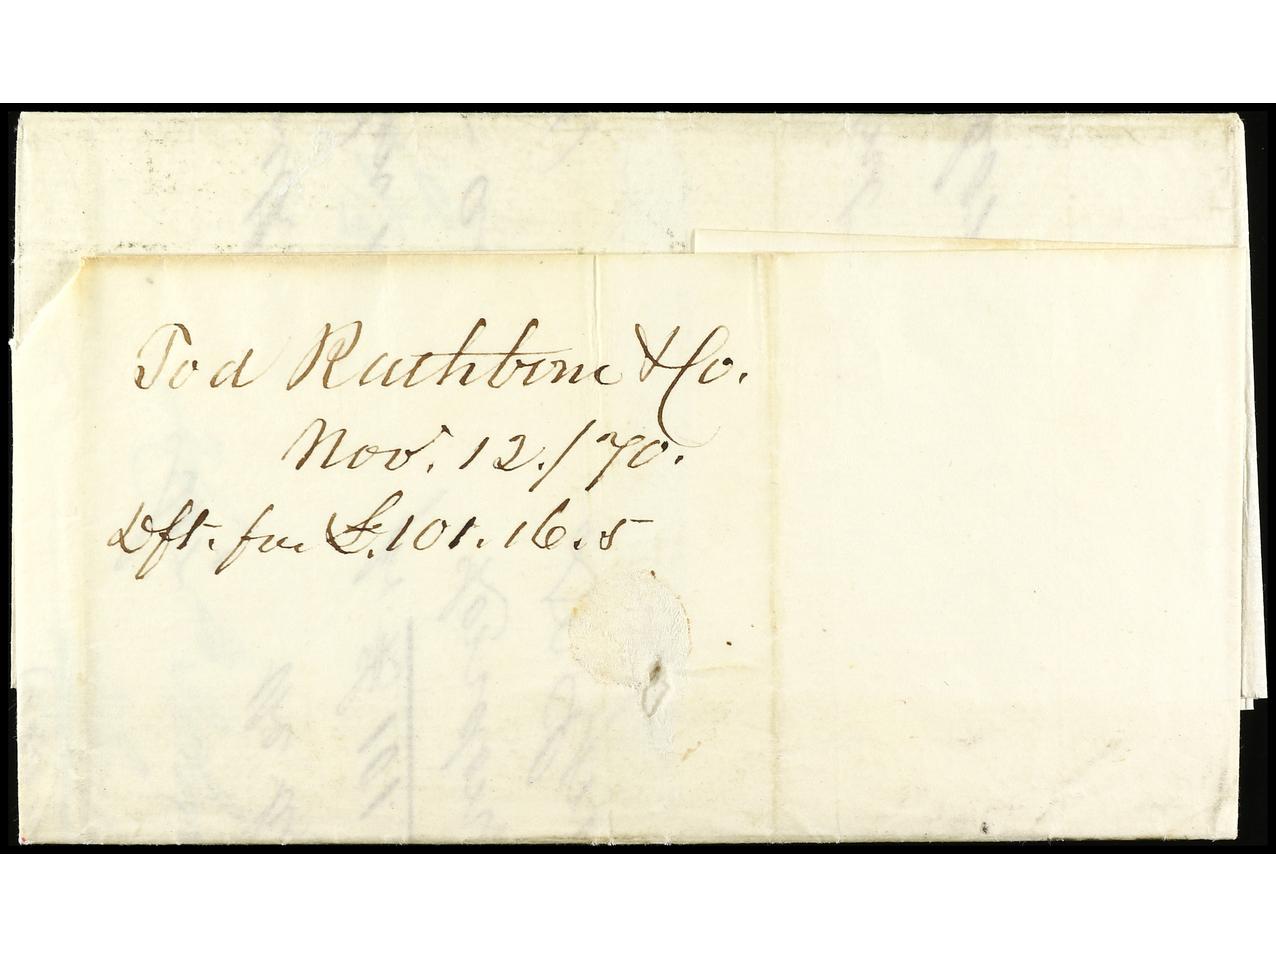 Tod Rathbone & Co.
Nov. 12./70.
Dft. for £.101.16.5